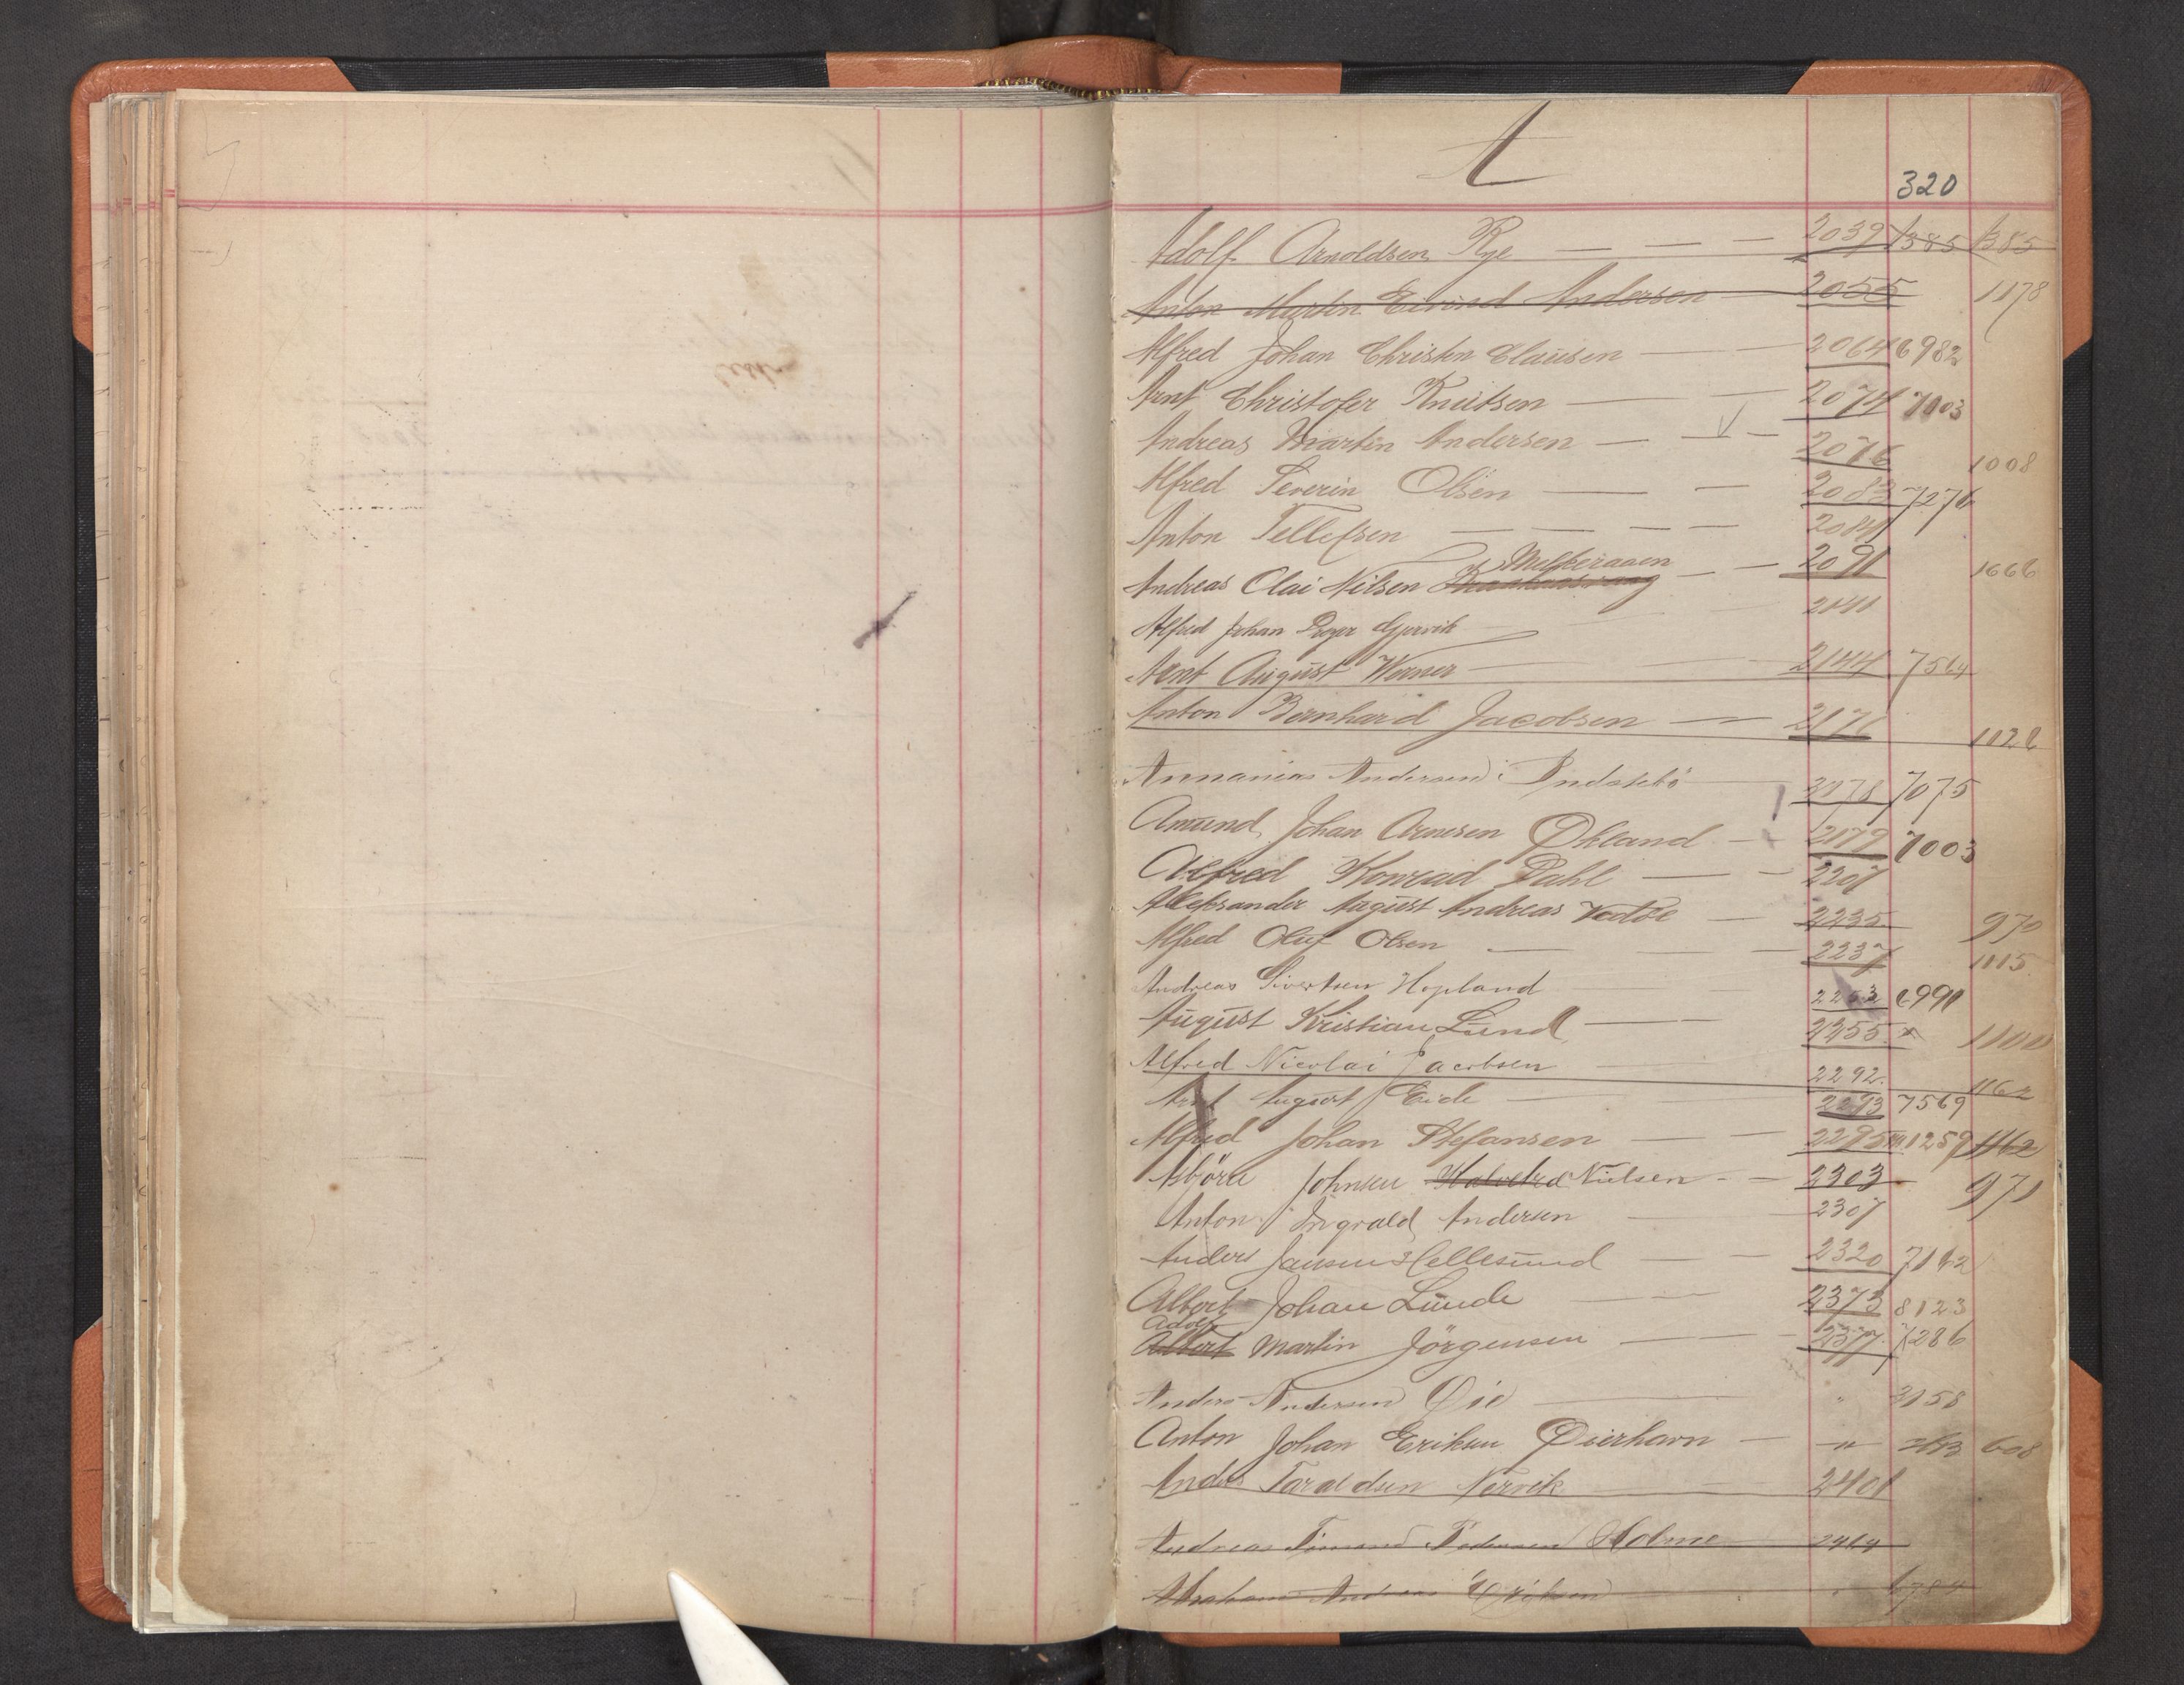 A
320
Adolf Arnoldsen Rye — — — 2039 1385 1385
Anton Martin Eivind Andersen — 2055 1178
Alfred Johan Christen Clausen — 2064 6982
Arnt Christofer Knutsen — — 2074 7003
Andreas Martin Andersen — — 2076 1008
Alfred Severin Olsen — — 2083 7276
Anton Tellefsen — — — — 2084
Andreas Olai Nilsen — — 2091 1666
Alfred Johan Gjervik
Arnt August Werner — 2144 7564
Anton Bernhard Jacobsen — 2171
Annanias Andersen Indstebö — 2178 7075
Amund Johan Arnesen Økland — 2179 7003
Alfred Konrad Dahl — — 2207
Aleksander August Andreas — 2235 970
Alfred Oluf Olsen — — 2237 1115
Andreas Sivertsen Hopland 2253 6991
August Kristian Lund — — 2255 1100
Alfred Nicolai Jacobsen 2292 1162
Arnt August Eide — 2293 7569
Alfred Johan Stefansen — — 2295 1259 1162
Johnsen Nielsen — — 2303 971
Anton Ingvald Andersen — 2307
Anders Jansen Hellesund — — 2320
Albert Johan Lunde — — 2373 8123
Adolf
Albert Martin Jörgensen — — 2377 7286
Anders Andersen Öie — " 3158
Anton Johan Eriksen — " 608
Anders Taraldsen Nervik — — 2401
Andreas Pedersen Holme 2414
Abraham Andreas Eriksen